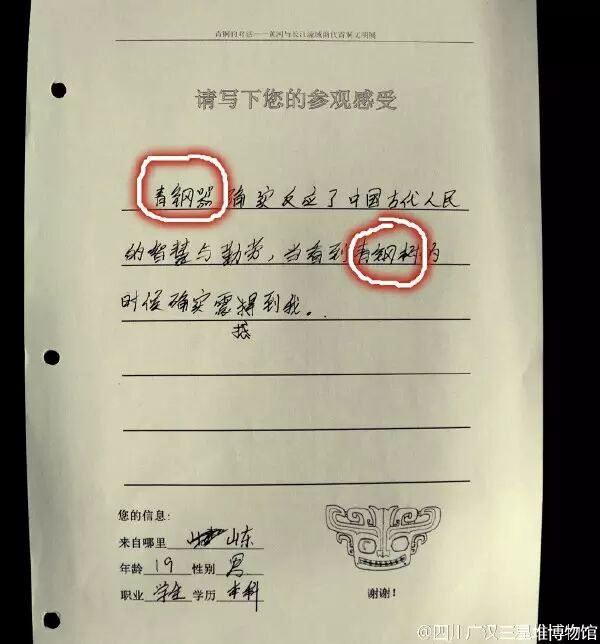 青铜的对话——黄河与长江流域商代青铜文明展
请写下您的参观感受
青钢器确实反应了中国古代人民
的智慧与勤劳，当看到青钢树的
时侯确实震到我。
您的信息:
来自哪里 山东
年龄 19 性别 男
职业 学生 学历 本科
谢谢!
@四川广汉三星堆博物馆